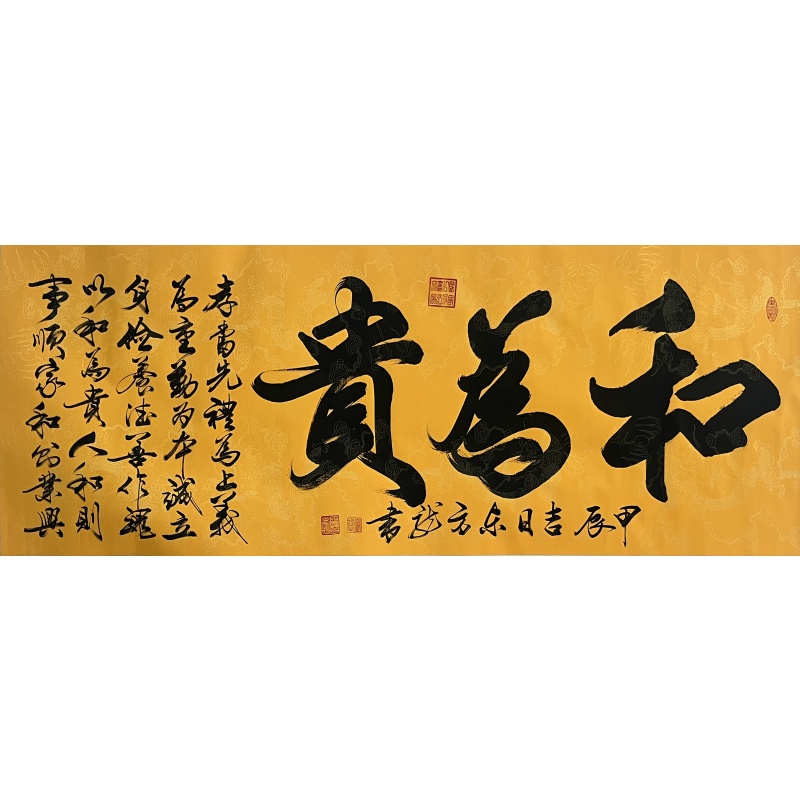 和為貴
甲辰吉日东方龙書
孝當先禮為上義
為重勤为本誠立
身儉養德善作
以和為貴人和則
事順家和業興